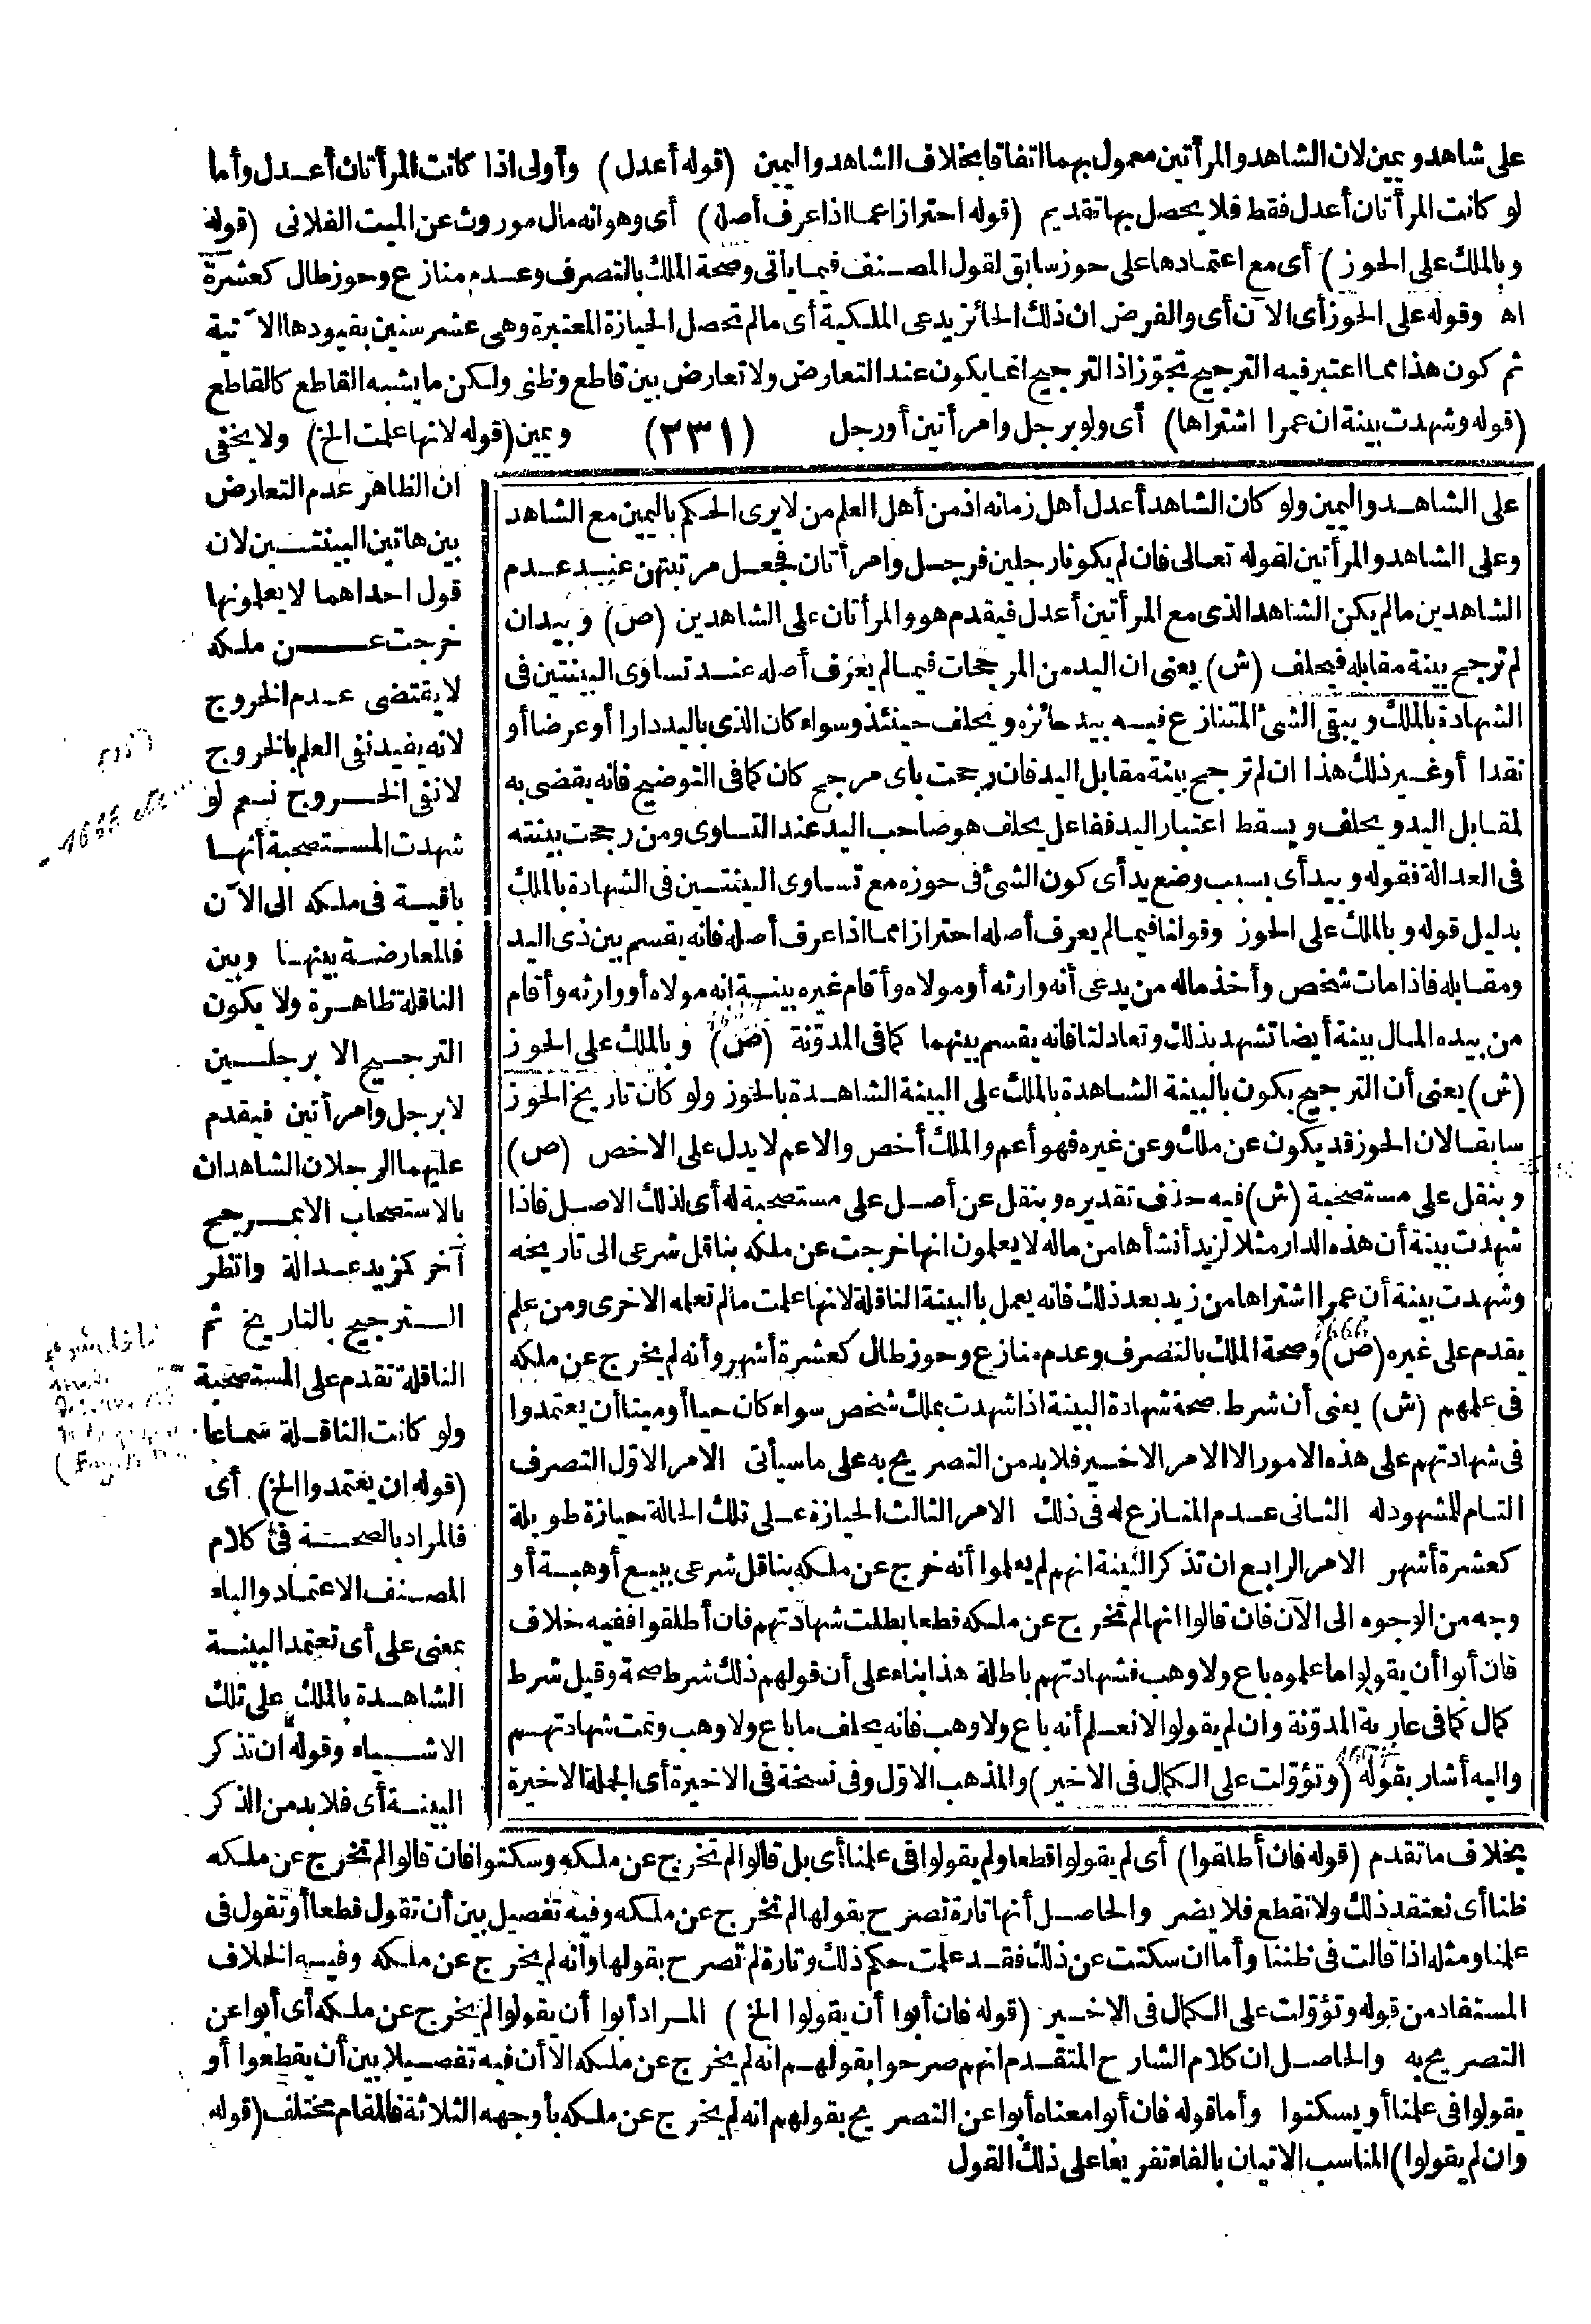 على شاهد ويمين لان الشاهد والمرأتين معمول بهما اتفاقا بخلاف الشاهد واليمين (قوله أعدل) وأولى اذا كانت المرأتان أعدل وأما
لو كانت المرأتان أعدل فقط فلا يحصل بها تقديم (قوله احترازا عما اذا عرف أصله) أى وهو انه مال موروث عن الميت الفلانى (قوله
وبالملك على الحوز) أى مع اعتمادها على حوز سابق لقول المصنف فيما يأتى وصحة الملك بالتصرف وعدم منازع وحوز طال كعشرة
اه وقوله على الحوز أى الآن أى والفرض ان ذلك الحائز يدعى الملكية أى مالم تحصل الحيازة المعتبرة وهى عشر سنين بقيودها الآتية
ثم كون هذا مما اعتبر فيه الترجيح تجوّز اذ الترجيح انما يكون عند التعارض ولا تعارض بين قاطع وظنى ولكن ما يشبه القاطع كالقاطع
(قوله وشهدت بينة ان عمرا اشتراها) أى ولو برجل وامرأتين أو رجل (٢٣١) ويمين (قوله لانها علمت الخ) ولا يخفى
ان الظاهر عدم التعارض
بين هاتين البينتين لان
قول احداهما لا يعلمونها
خرجت عن ملكه
لا يقتضى عدم الخروج
لانه يفيد نفى العلم بالخروج
لا نفى الخروج نعم لو
شهدت المستصحبة أنها
باقية فى ملكه الى الآن
فالمعارضة بينها وبين
الناقلة ظاهرة ولا يكون
الترجيح الا برجلين
لا برجل وامرأتين فيقدم
عليهما الرجلان الشاهدان
بالاستصحاب الا بمرجح
آخر كمزيد عدالة وانظر
الترجيح بالتاريخ ثم
الناقلة تقدم على المستصحبة
ولو كانت الناقلة سماعا
(قوله ان يعتمدوا الخ) أى
فالمراد بالصحة فى كلام
المصنف الاعتماد والباء
بمعنى على أى تعتمد البينة
الشاهدة بالملك على تلك
الاشياء وقوله ان تذكر
البينة أى فلا بد من الذكر
على الشاهد واليمين ولو كان الشاهد أعدل أهل زمانه اذ من أهل العلم من لا يرى الحكم باليمين مع الشاهد
وعلى الشاهد والمرأتين لقوله تعالى فان لم يكونا رجلين فرجل وامرأتان فجعل مرتبتهن عند عدم
الشاهدين مالم يكن الشاهد الذى مع المرأتين أعدل فيقدم هو والمرأتان على الشاهدين (ص) وبيد ان
لم ترجح بينة مقابله فيحلف (ش) يعنى ان اليد من المرجحات فيما لم يعرف أصله عند تساوى البينتين فى
الشهادة بالملك ويبقى الشئ المتنازع فيه بيد حائزه ويحلف حينئذ وسواء كان الذى باليد دارا أو عرضا أو
نقدا أو غير ذلك هذا ان لم ترجح بينة مقابل اليد فان رجحت باى مرجح كان كما فى التوضيح فانه يقضى به
لمقابل اليد ويحلف ويسقط اعتبار اليد ففاعل يحلف هو صاحب اليد عند التساوى ومن رجحت بينته
فى العدالة فقوله وبيد أى بسبب وضع يد أى كون الشئ فى حوزه مع تساوى البينتين فى الشهادة بالملك
بدليل قوله وبالملك على الحوز وقولنا فيما لم يعرف أصله احترازا مما اذا عرف أصله فانه يقسم بين ذى اليد
ومقابله فاذا مات شخص وأخذ ماله من يدعى أنه وارثه أو مولاه وأقام غيره بينة انه مولاه أو وارثه وأقام
من بيده المال بينة أيضا تشهد بذلك وتعادلتا فانه يقسم بينهما كما فى المدوّنة (ص) وبالملك على الحوز
(ش) يعنى أن الترجيح يكون بالبينة الشاهدة بالملك على البينة الشاهدة بالحوز ولو كان تاريخ الحوز
سابقا لان الحوز قد يكون عن ملك وعن غيره فهو أعم والملك أخص والاعم لا يدل على الاخص (ص)
وبنقل على مستصحبة (ش) فيه حذف تقديره وبنقل عن أصل على مستصحبة له أى لذلك الاصل فاذا
شهدت بينة أن هذه الدار مثلا لزيد أنشأها من ماله لا يعلمون انها خرجت عن ملكه بناقل شرعى الى تاريخه
وشهدت بينة أن عمرا اشتراها من زيد بعد ذلك فانه يعمل بالبينة الناقلة لانها علمت مالم تعلمه الاخرى ومن علم
يقدم على غيره (ص) وصحة الملك بالتصرف وعدم منازع وحوز طال كعشرة أشهر وأنه لم يخرج عن ملكه
فى علمهم (ش) يعنى أن شرط صحة شهادة البينة اذا شهدت بملك شخص سواء كان حيا أو ميتا أن يعتمدوا
فى شهادتهم على هذه الامور الا الامر الاخير فلا بد من التصريح به على ما سيأتى الامر الاوّل التصرف
التام للمشهود له الثانى عدم المنازع له فى ذلك الامر الثالث الحيازة على تلك الحالة حيازة طويلة
كعشرة أشهر الامر الرابع ان تذكر البينة انهم لم يعلموا أنه خرج عن ملكه بناقل شرعى ببيع أو هبة أو
وجه من الوجوه الى الآن فان قالوا انها لم تخرج عن ملكه قطعا بطلت شهادتهم فان أطلقوا ففيه خلاف
فان أبوا أن يقولوا ما علموه باع ولا وهب فشهادتهم باطلة هذا بناء على أن قولهم ذلك شرط صحة وقيل شرط
كمال كما فى عارية المدوّنة وان لم يقولوا لا نعلم أنه باع ولا وهب فانه يحلف ما باع ولا وهب وتمت شهادتهم
واليه أشار بقوله (وتؤوّلت على الكمال فى الاخير) والمذهب الاوّل وفى نسخة فى الاخيرة أى الجملة الاخيرة
بخلاف ما تقدم (قوله فان أطلقوا) أى لم يقولوا قطعا ولم يقولوا فى علمنا أى بل قالوا لم تخرج عن ملكه وسكتوا فان قالوا لم تخرج عن ملكه
ظنا أى نعتقد ذلك ولا نقطع فلا يضر والحاصل أنها تارة تصرح بقولها لم تخرج عن ملكه وفيه تفصيل بين أن تقول قطعا أو تقول فى
علمنا ومثله اذا قالت فى ظننا وأما ان سكتت عن ذلك فقد علمت حكم ذلك وتارة لم تصرح بقولها وأنه لم يخرج عن ملكه وفيه الخلاف
المستفاد من قوله وتؤوّلت على الكمال فى الاخير (قوله فان أبوا أن يقولوا الخ) المراد أبوا أن يقولوا لم يخرج عن ملكه أى أبوا عن
التصريح به والحاصل ان كلام الشارح المتقدم انهم صرحوا بقولهم انه لم يخرج عن ملكه الا أن فيه تفصيلا بين أن يقطعوا أو
يقولوا فى علمنا أو يسكتوا وأما قوله فان أبوا معناه أبوا عن التصريح بقولهم انه لم يخرج عن ملكه بأوجهه الثلاثة فالمقام مختلف (قوله
وان لم يقولوا) المناسب الاتيان بالفاء تفريعا على ذلك القول
1666